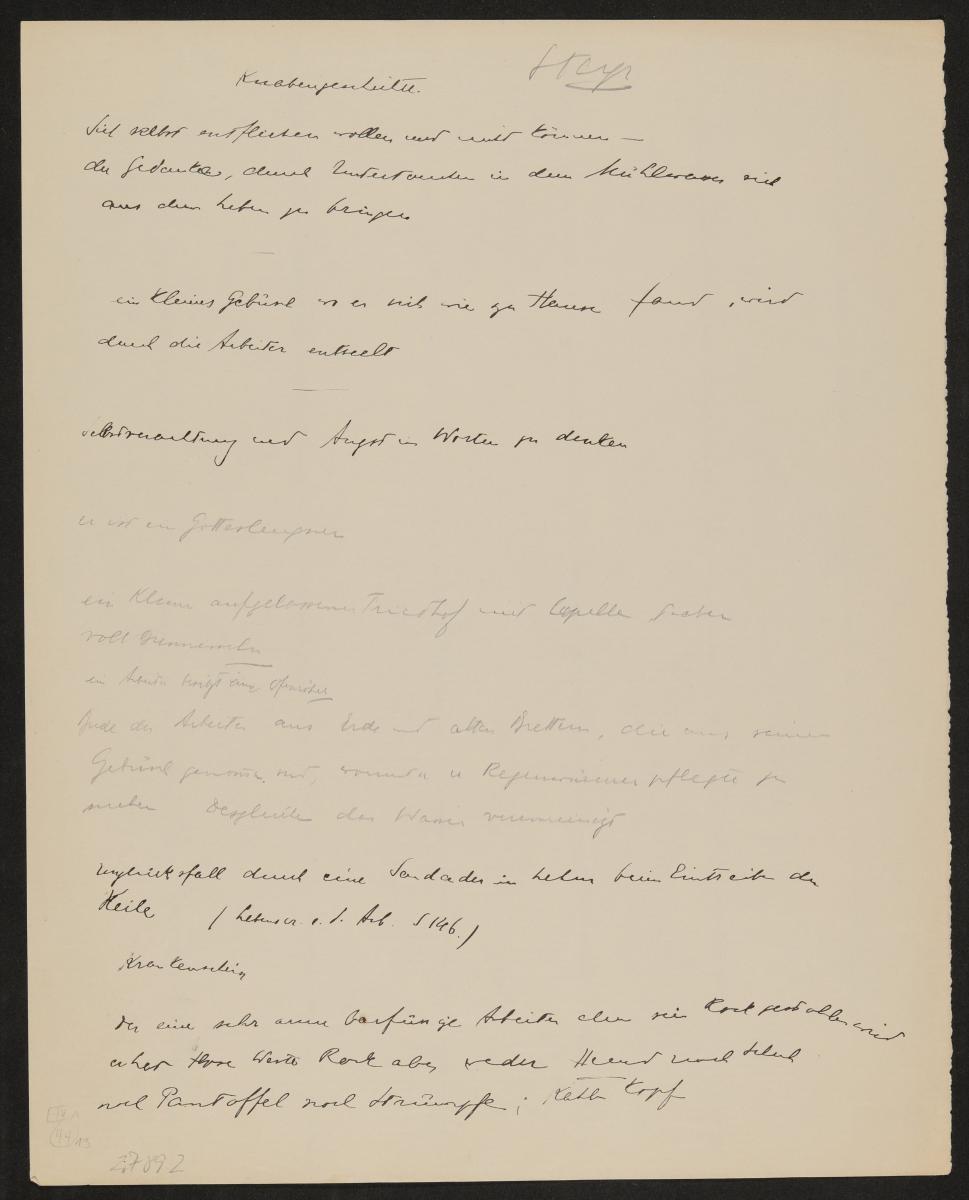 Steyr
Knabengeschichte.
Sich selbst entfliehen wollen und nicht können —
der Gedanke, durch Untertauchen in dem Mühlwasser sich
aus dem Leben zu bringen
ein kleines Gebüsch wo er sich wie zu Hause fand, wird
durch die Arbeiter entseelt
und Angst in Worten zu denken
er ist ein Gottesleugner
ein kleiner aufgelassener Friedhof mit Capelle
voll Brennesseln
ein Arbeiter besitzt eine
Bude der Arbeiter aus Erde und alten Brettern, die aus seinem
Gebüsch genommen sind, worunter er Regenwürmer pflegte zu
suchen Desgleichen das Wasser verunreinigt
Unglücksfall durch eine Sandader im Lehm beim Eintreiben der
Keile (Lebensgr. e. d. Arb. S 146.)
Krankenschein
Der eine sehr arme barfüssige Arbeiter dem sein Rock gestohlen wird
er hat Hose Weste Rock aber weder Hemd noch Schuh
noch Pantoffel noch Strümpfe; Kopf
27892